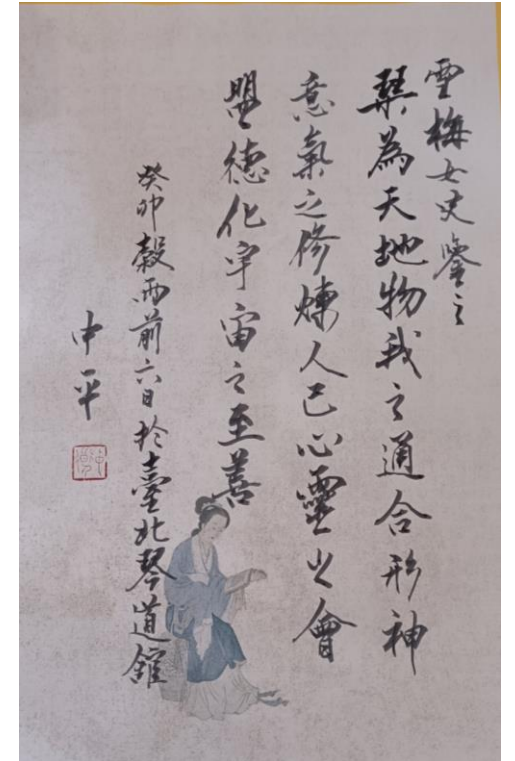 雪梅女史鑒之
琹為天地物我之通合形神
意氣之修煉人己心靈之會
盟德化宇宙之至善
癸卯穀雨前六日於臺北琴道館
申平